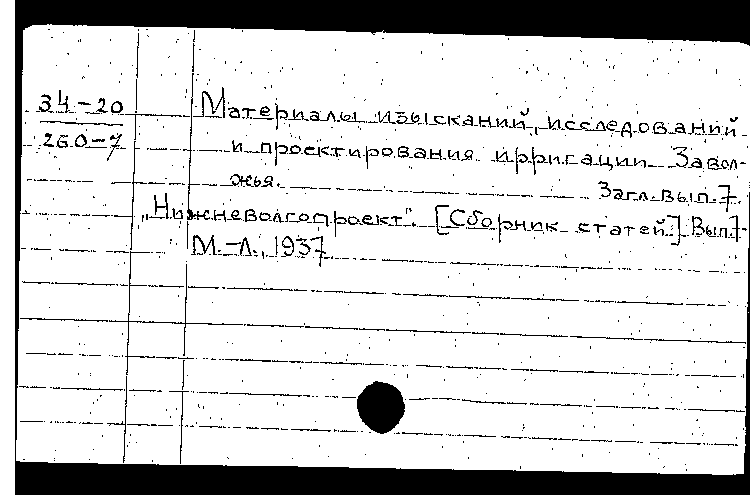 34-20
260-7
Материалы изысканий, исследований
и проектирования ирригации Завол-
жья. Загл. вып. 7.
„Нижневолгопроект". [Сборник статей.] Вып. 7.
М.-Л., 1937